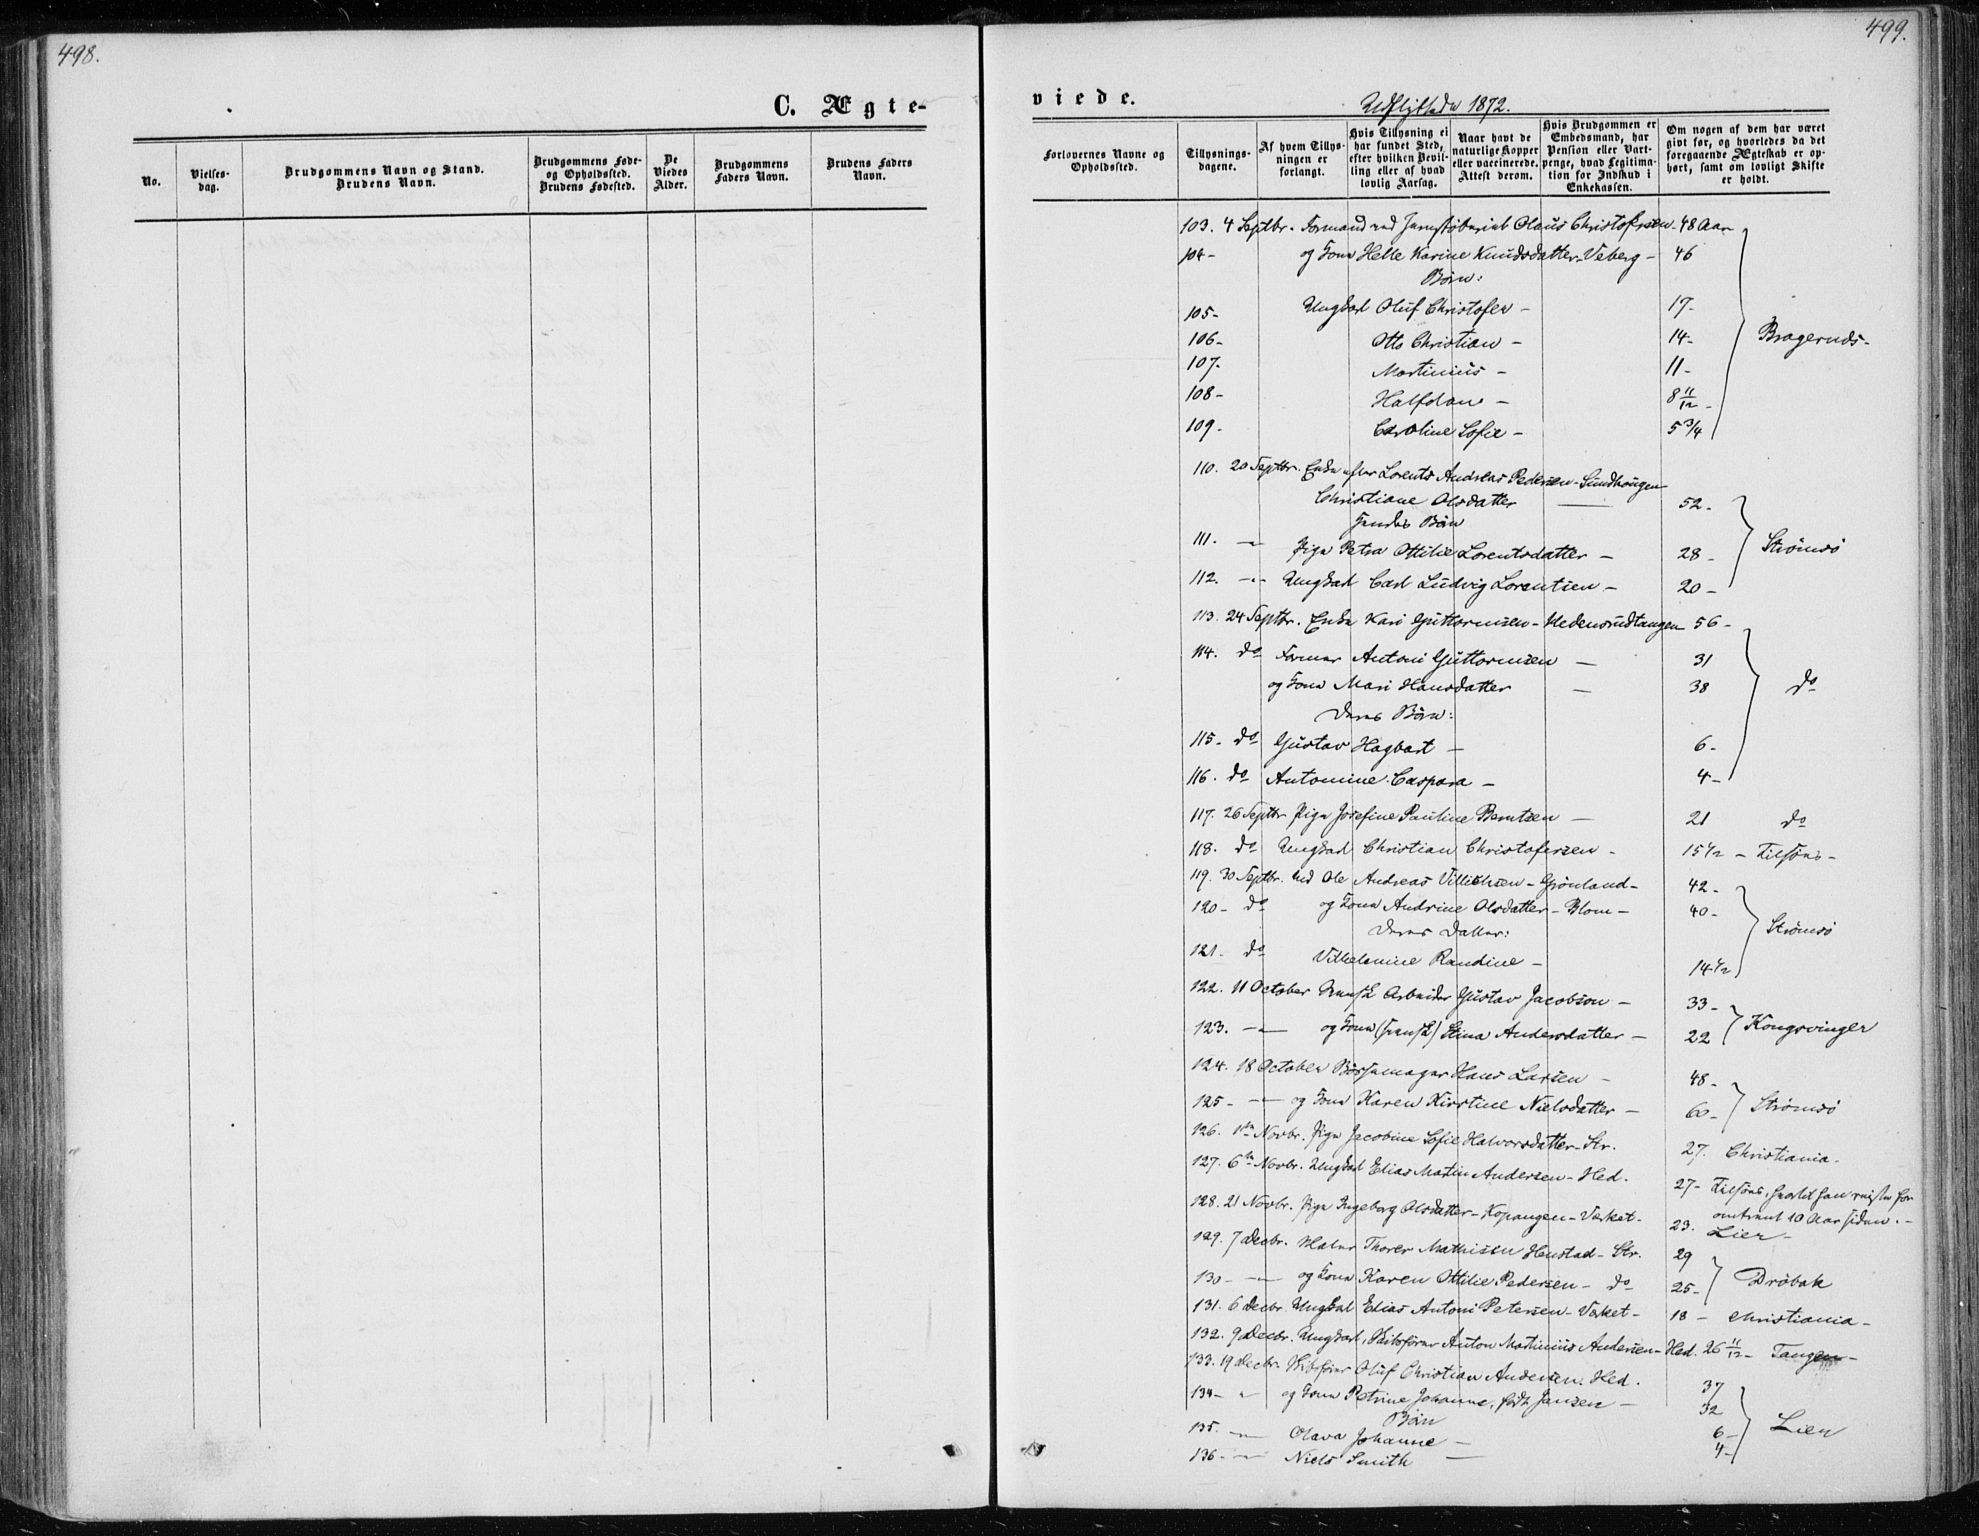 498.
C. Ægte-
No.
Vielses-
dag.
Brudgommens Navn og Stand.
Brudens Navn.
Brudgommens Føde-
og Opholdssted.
Brudens Fødested.
De
Viedes
Alder.
Brudgommens
Faders Navn.
Brudens Faders
Navn.
499.
viede.
Udflyttede 1872.
Forlovernes Navne og
Opholdssted.
Tillysnings-
dagene.
Af hvem Tillys-
ningen er
forlangt.
Hvis Tillysning ei
har fundet Sted,
efter hvilken Bevil-
ling eller af hvad
lovlig Aarsag.
Naar havt de
naturlige Kopper
eller vaccinerede.
Attest derom.
Hvis Brudgommen er
Embedsmand, har
Pension eller Vart-
penge, hvad Legitima-
tion for Indskud i
Enkekassen.
Om nogen af dem har været
gift før, og hvorledes da det
foregaaende Ægteskab er op-
hørt, samt om lovligt Skifte
er holdt.
103. 4 Septbr. Formand ved Jernstøberiet Olaus Christofersen - 48 Aar
104 - og Kone Helle Karine Knudsdatter Veberg - 46
Børn:
105 - Ungkarl Oluf Christofer - 17 -
106 - Otto Christian - 14 - Bragernæs -
107. Martinius - 11 -
108 - Halfdan - 8 11/12 -
109 - Caroline Sofie - 5 3/4
110. 20 Septbr. Enke efter Lorents Andreas Pedersen - Sundhougen
Christiane Olsdatter 52 -
hendes Børn
111. - Pige Petra Ottilie Lorentsdatter - 28 - Strømsø
112. - Ungkarl Carl Ludvig Lorentsen - 20 -
113. 24 Septbr. Enke Kari Guttormsen - Hedensrudtangen 56 -
114. do Former Antoni Guttormsen - 31
og Kone Mari Hansdatter - 38 do
deres Børn:
115 - do Gustav Hagbart - 6 -
116. do Antomine Caspara - 4 -
117. 26 Septbr Pige Josefine Pauline Berntsen - 21 do
118. do Ungkarl Christian Christofersen - 15 1/2 -
119. 30 Septbr. Ole Andreas - Grønland - 42 -
120 - do og Kone Andrine Olsdatter - Blom - 40 - Strømsø
deres Datter:
121. do Vilhelmine Randine - 14 1/2
122. 11 October Arbeider Gustav Jacobson - 33 -
123. - og Kone Stina Andersdatter - 22 Kongsvinger
124. 18 October Børsemager Hans Larsen - 48 -
125 - og Kone Karen Kirstine Nielsdatter - 60 - Strømsø
126. 1ste Novbr. Pige Jacobine Sofie Halvorsdatter - Str. 27. Christiania -
127. 6te Novbr. Ungkarl Elias Martin Andersen - Hed. 27 -
omtrent 10 Aar siden. -
128. 21 Novbr. Pige Ingeborg Olsdatter - Kopangen - Værket - 23. Lier -
129. 7 Decbr. Maler Thorer Mathisen Henstad - Str. 29
130 - og Kone Karen Ottilie Pedersen - do 25 - Drøbak
131. 6 Decbr. Ungkarl Elias Antoni Petersen - Værket - 18 - Christiania -
132. 9 Decbr. Ungkarl, Skibsfører Anton Martinius Andersen - Hed. 26 11/12 - Tangen -
133. 19 Decbr. Skibsfører Oluf Christian Andersen. Hed. 37
134 - og Kone Petrine Johanne, født Jansen - 32
Børn Lien
135. Olava Johanne - 6 -
136 - Niels Smith - 4 -